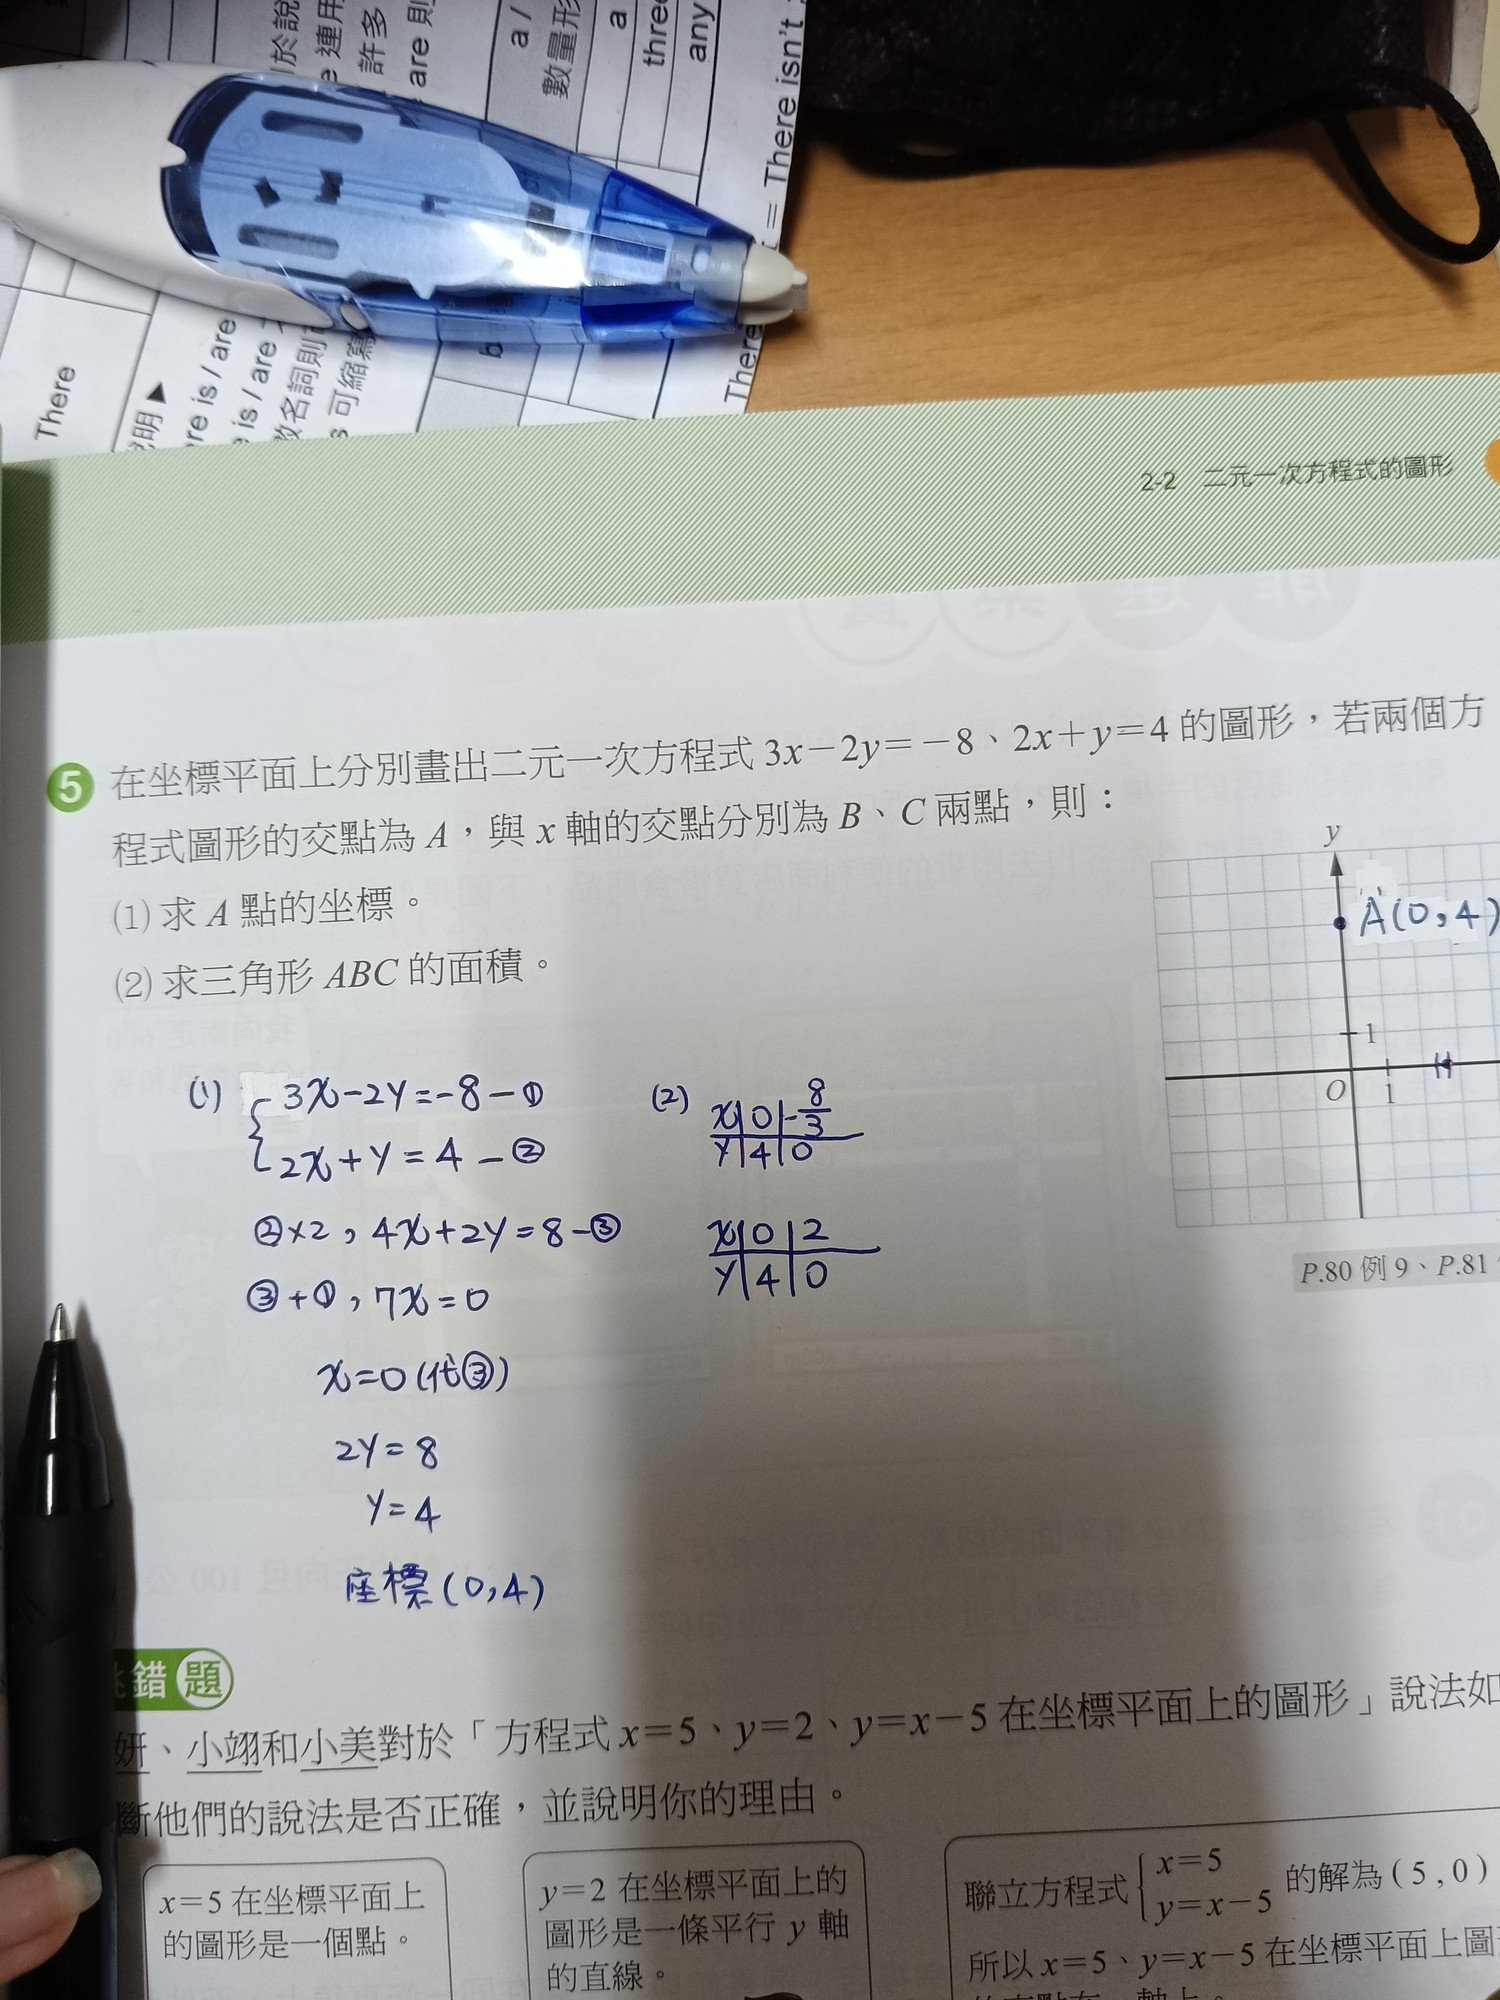 a /
數量形
a
three
any
於說
連用
許多
are 則
= There isn't
There
b
There
說明▶
ere is / are
e is / are
數名詞則
可縮寫
2-2 二元一次方程式的圖形
5 在坐標平面上分別畫出二元一次方程式 3x－2y＝－8、2x＋y＝4 的圖形，若兩個方
程式圖形的交點為 A，與 x 軸的交點分別為 B、C 兩點，則：
(1) 求 A 點的坐標。
(2) 求三角形 ABC 的面積。
y
A(0,4)
1
O 1
P.80 例 9、P.81
(1) { 3x-2y=-8-①
2x+y=4-②
②×2，4x+2y=8-③
③+①，7x=0
x=0(代③)
2y=8
y=4
座標(0,4)
(2) x|0|-8/3
y|4|0
x|0|2
y|4|0
錯題
妍、小翊和小美對於「方程式 x＝5、y＝2、y＝x－5 在坐標平面上的圖形」說法如
斷他們的說法是否正確，並說明你的理由。
x＝5 在坐標平面上
的圖形是一個點。
y＝2 在坐標平面上的
圖形是一條平行 y 軸
的直線。
聯立方程式 { x＝5
y＝x－5 的解為 ( 5 , 0 )
所以 x＝5、y＝x－5 在坐標平面上圖